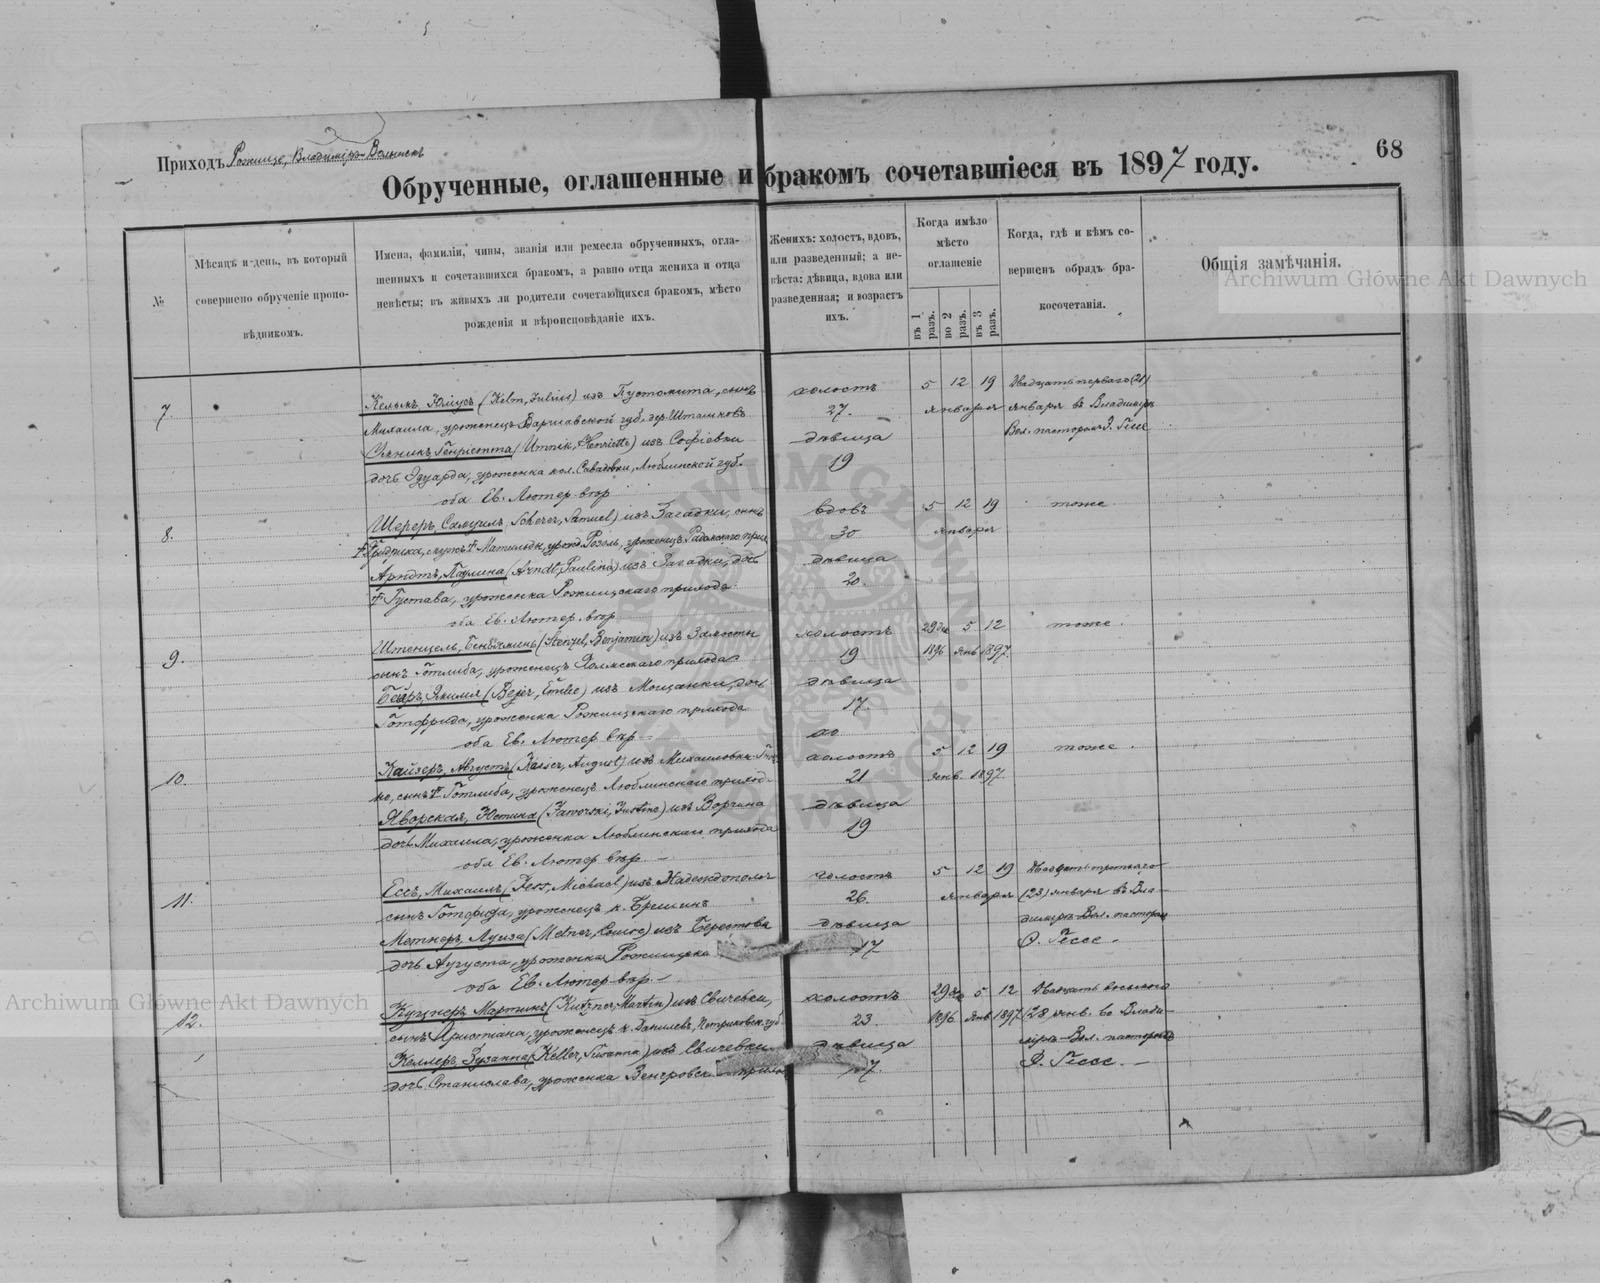 68
Приходъ Рожище, Владиміръ-Волынскъ
Обрученные, оглашенные и бракомъ сочетавшіеся въ 1897 году.
№
Мѣсяцъ и день, въ который
совершено обрученіе пропо-
вѣдникомъ.
Имена, фамиліи, чины, званія или ремесла обрученныхъ, огла-
шенныхъ и сочетавшихся бракомъ, а равно отца жениха и отца
невѣсты; въ живыхъ ли родители сочетающихся бракомъ, мѣсто
рожденія и вѣроисповѣданіе ихъ.
Женихъ: холостъ, вдовъ,
или разведенный; а не-
вѣста: дѣвица, вдова или
разведенная; и возрастъ
ихъ.
Когда имѣло
мѣсто
оглашеніе
въ 1 разъ.
во 2 разъ.
въ 3 разъ.
Когда, гдѣ и кѣмъ со-
вершенъ обрядъ бра-
косочетанія.
Общія замѣчанія.
Archiwum Główne Akt Dawnych
7.
Кельмъ, Юліусъ (Kelm, Julius) изъ Пустомита, сынъ
Михаила, уроженецъ Варшавской губ. дер.
Генріетта (Henriette) изъ Софіевки
дочь Эдуарда, уроженка кол. Люблинской губ.
оба Ев. Лютер. вѣр.
холостъ
27.
дѣвица
19
5 12 19
января
Двадцать перваго (21)
января в Владимір
Вол. пасторомъ Гессе
8.
Шереръ, Самуилъ, Scherer, Samuel) изъ Загадки, сынъ
Арндтъ, Паулина (Arndt, Paulina) изъ Загадки, дочь
Густава, уроженка Рожищскаго прихода
оба Ев. Лютер. вѣр.
вдовъ
30
дѣвица
20.
5 12 19
января
тоже.
9.
Штенцель, Беніяминъ (Stenzel, Benjamin) изъ
сынъ Готлиба, уроженецъ прихода
Бейеръ, Эмилія (Bejer, Emilie) изъ Мощанки, дочь
Готфрида, уроженка Рожищскаго прихода
оба Ев. Лютер. вѣр.
холостъ
19
дѣвица
17.
29 дек 5 12
1896 янв 1897.
тоже.
10.
Кайзеръ, Августъ (Kaiser, August) изъ Михайловки
сынъ Готлиба, уроженецъ Люблинскаго приход.
Яворская, Юстина (Jaworski, Justine) изъ Ворчина
дочь Михаила, уроженка Люблинскаго прихода
оба Ев. Лютер. вѣр.
холостъ
21
дѣвица
19
5 12 19
янв. 1897.
тоже.
11.
Ессъ, Михаилъ (Jess, Michael) изъ
сынъ Готфрида, уроженецъ к.
Метнеръ, Луиза (Metner, Louise) изъ Берестова
дочь Августа, уроженка Рожищска
оба Ев. Лютер. вѣр.
холостъ
26.
дѣвица
17
5 12 19
января
Двадцать третьяго
(23) января въ Вла-
димірѣ-Вол. пасторомъ
Гессе.
12.
Куцнеръ, Мартинъ (Kutzner, Martin) изъ Свичевки,
сынъ Христіана, уроженецъ губ.
Келлеръ, Зузанна (Keller, Susanna) изъ Свичевки
дочь Станислава, уроженка Венгровск
холостъ
23.
дѣвица
17.
29 дек 5 12
1896 янв 1897
Двадцать восьмого
(28 янв. во Влади-
мірѣ-Вол. пасторомъ
Гессе.
Archiwum Główne Akt Dawnych
ARCHIWUM GŁÓWNE AKT DAWNYCH